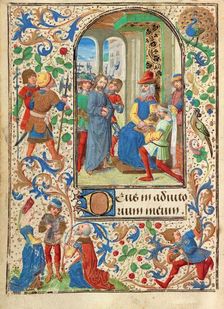 Deus in adiuto
rium meum